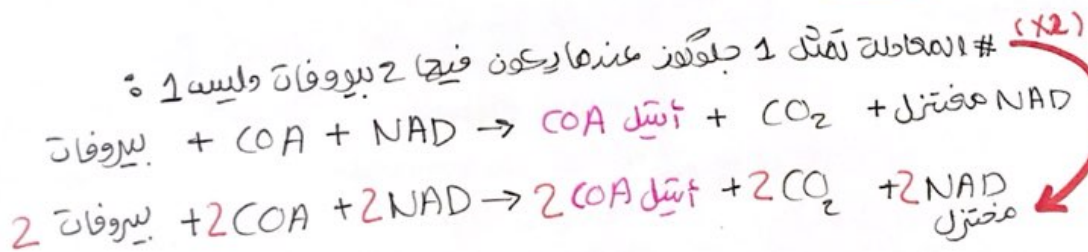 # المعادلة تمثل 1 جلوكوز عندما يكون فيها 2 بيروفات وليس 1 : (x2)
بيروفات + COA + NAD → أستيل COA + CO₂ + NAD مختزل
2 بيروفات + 2COA + 2NAD → 2 أستيل COA + 2CO₂ + 2NAD مختزل